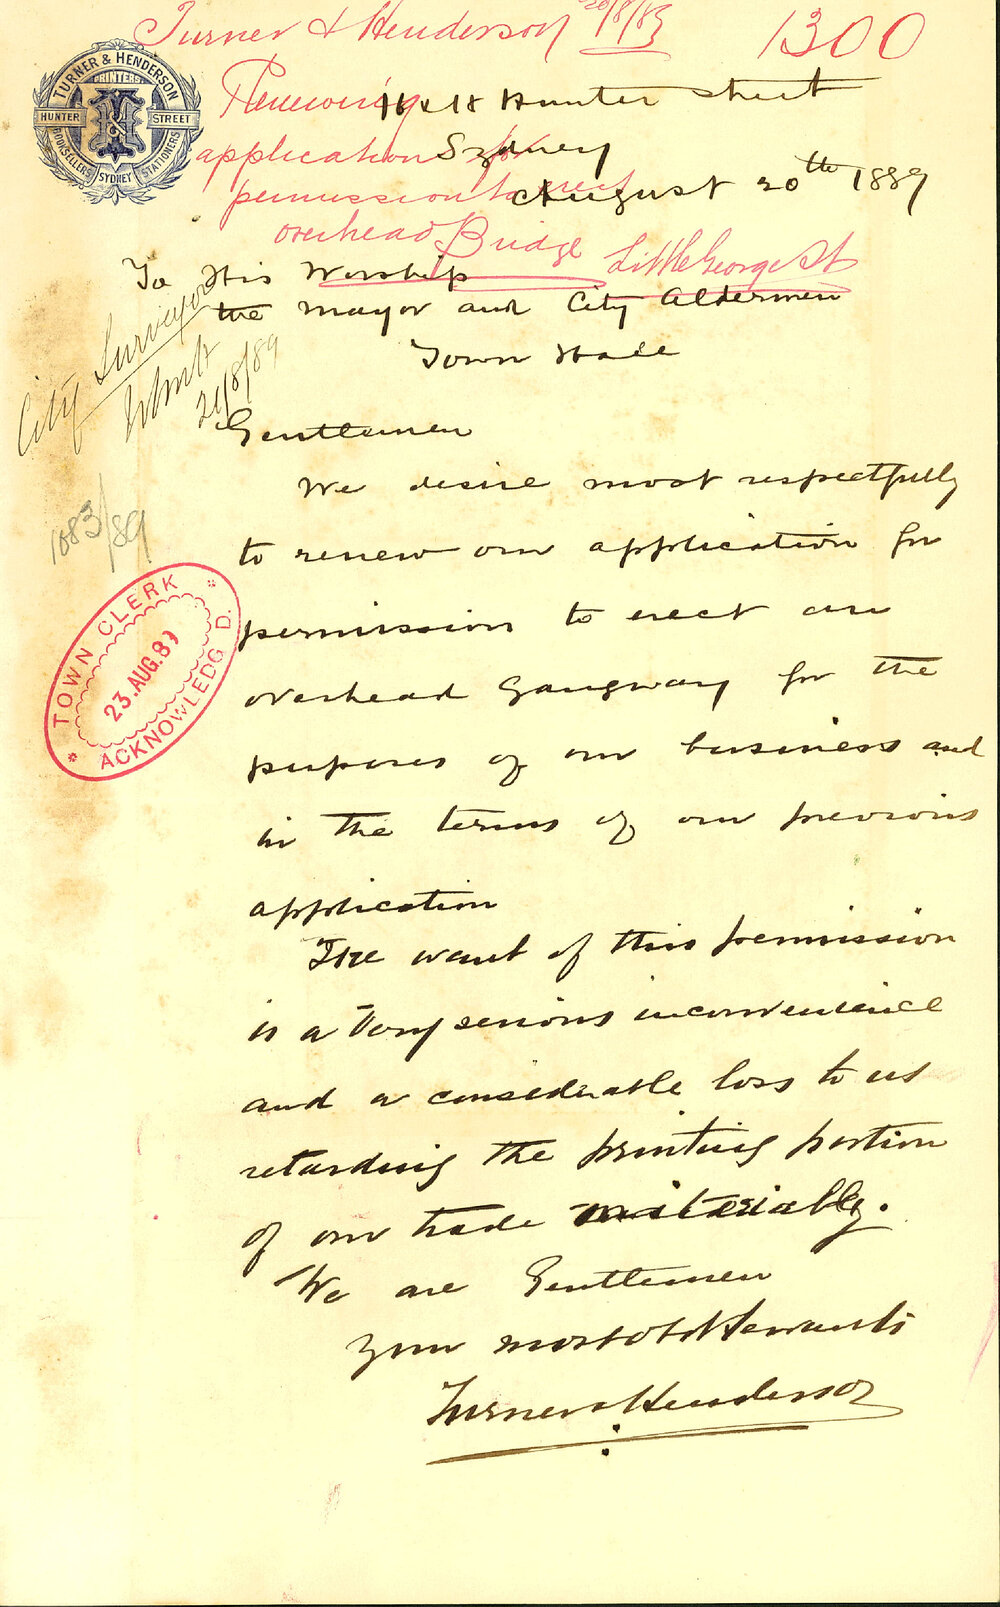 Turner & Henderson 20/8/89
1300
Renewing
application for
permission to erect
overhead Bridge Little George St
TURNER & HENDERSON
PRINTERS
HUNTER STREET
BOOKSELLERS SYDNEY STATIONERS
16 & 18 Hunter Street
Sydney
August 20th 1889
To His Worship
the Mayor and City Aldermen
Town Hall
City Surveyor
21/8/89
1083/89
TOWN CLERK
23. AUG. 89
ACKNOWLEDGD.
Gentlemen
We desire most respectfully
to renew our application for
permission to erect an
overhead Gangway for the
purposes of our business and
in the terms of our previous
application
The want of this permission
is a Very serious inconvenience
and a considerable loss to us
retarding the printing portion
of our trade materially.
We are Gentlemen
Your most obdt Servants
Turner & Henderson